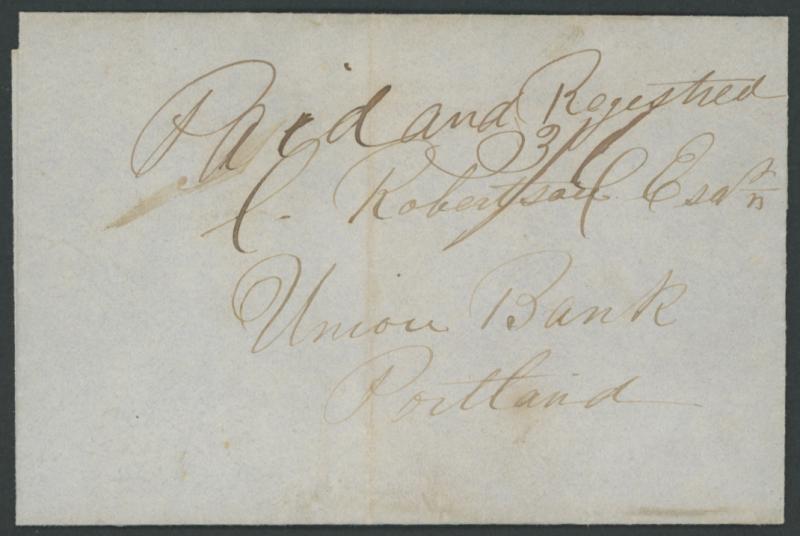 Paid and Registred
3/
C. Robertson Esqr
Union Bank
Portland